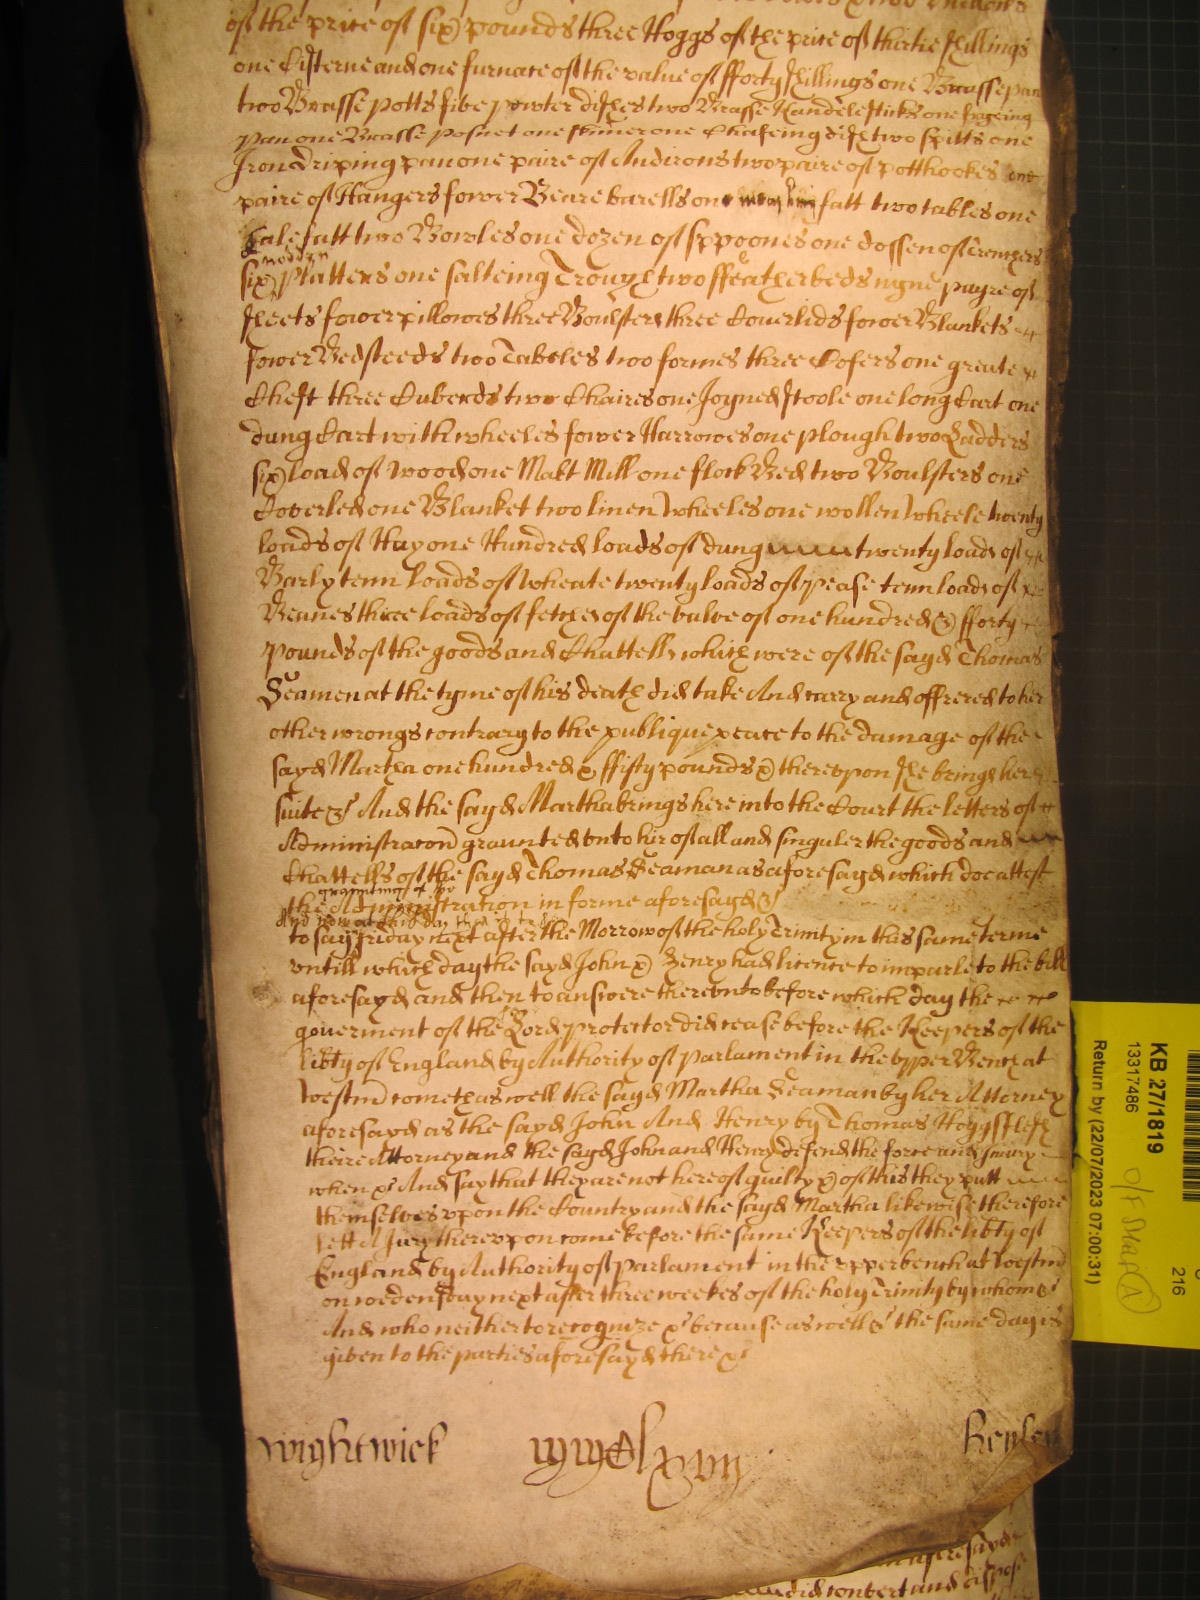 of the price of six pounds three Hoggs of the price of thirtie shillings
one Cisterne and one furnace of the value of fforty shillings one Brasse pan
two Brasse potts five pewter dishes two Brasse Kandelsticks one
pan one Brasse posnet one skimer one Chafeing dish two spitts one
Iron driping pan one paire of Andirons two paire of potthookes one
paire of Hangers fower Beare barells one fatt two tables one
fatt two Bowles one dozen of sppoones one dossen of Trenchers
wodden
six platters one salteing Trough two ffeatherbeds nyne payre of
sheets fower pillowes three Boulsters three Coverlids fower Blankets
fower Bedsteeds two Tableles two formes three Cofers one greate
Chest three Cuberds two Chaires one Joyned stoole one long Cart one
dung Cart with wheeles fower Harrowes one plough two Ladders
six load of wood one Malt Mill one flock Bed two Boulsters one
Coverled one Blanket two linen wheeles one wollen wheele twenty
loads of Hay one Hundred loads of dung twenty loads of
Barly tenn loads of wheate twenty loads of pease tenn loads of
Beanes three loads of fetches of the valve of one hundred & fforty
pounds of the goods and Chattells which were of the sayd Thomas
Seamen at the tyme of his death did take And carry and offrered to her
other wrongs contrary to the publique peace to the damage of the
sayd Martha one hundred & ffifty pounds & therevpon she brings her
suite &c And the sayd Martha brings here into the Court the letters of
Administracon graunted vnto hir of all and singuler the goods and
Chattells of the sayd Thomas Seaman as aforesayd which doe attest
graunting of the
the Administration in forme aforesayd &c
And now at this day that is to
to say friday next after the Morrow of the holy Trinity in this same terme
vntill which day the sayd John & Henry had licence to imparle to the bill
aforesayd and then to answere therevnto before which day the
goverment of the Lord protector did cease before the Keepers of the
libty of England by Authority of Parlament in the vpper Bench at
Westm come th as well the sayd Martha Seaman by her Attorney
aforesayd as the sayd John And Henry by Thomas Hoggsflesh
theire Attorney and the sayd John and Henry defend the force and Jniury
when &c And say that they are not hereof guilty & of this they putt
themselves vpon the Country and the sayd Martha likewise therefore
lett a Jury therevpon come before the same Keepers of the libty of
England by Authority of parlament in the vpper bench at Westm
on wedensday next after three weekes of the holy Trinity by whome &c
And who neither to recognize &c because as well &c the same day is
given to the parties aforesayd there &c
Wightwick
Henley
aforesayd
did convert and dispose
KB 27/1819
13317486
Return by (22/07/2023 07:00:31)
216